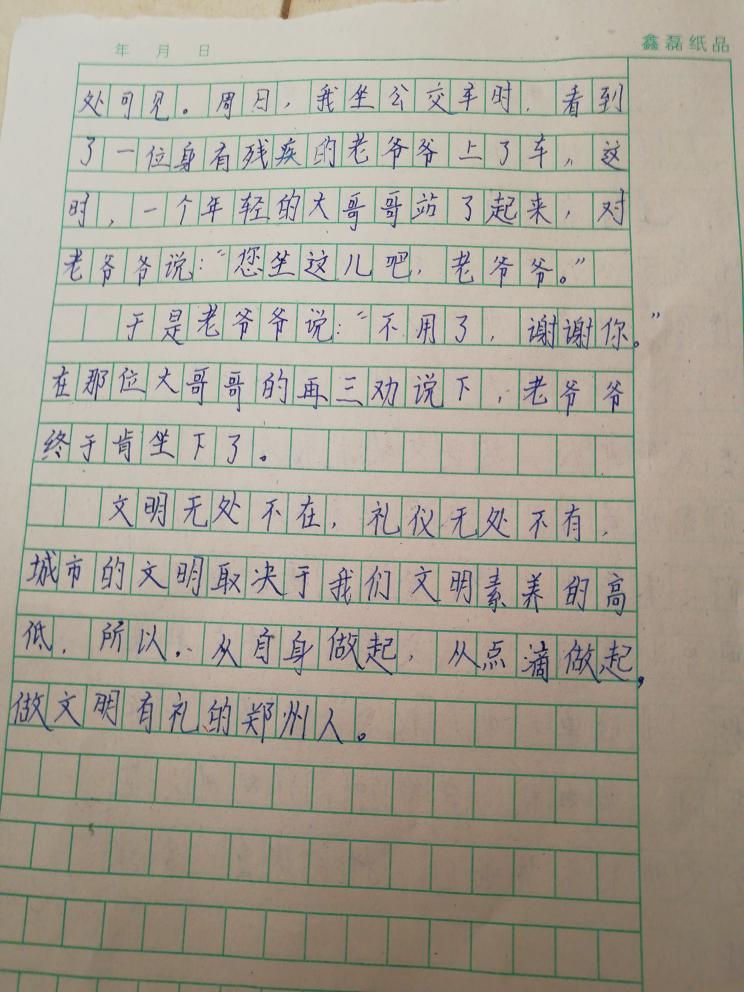 年 月 日
鑫磊纸品
处可见。周日，我坐公交车时，看到
了一位身有残疾的老爷爷上了车，这
时，一个年轻的大哥哥站了起来，对
老爷爷说：“您坐这儿吧，老爷爷。”
于是老爷爷说：“不用了，谢谢你。”
在那位大哥哥的再三劝说下，老爷爷
终于肯坐下了。
文明无处不在，礼仪无处不有，
城市的文明取决于我们文明素养的高
低，所以，从自身做起，从点滴做起，
做文明有礼的郑州人。